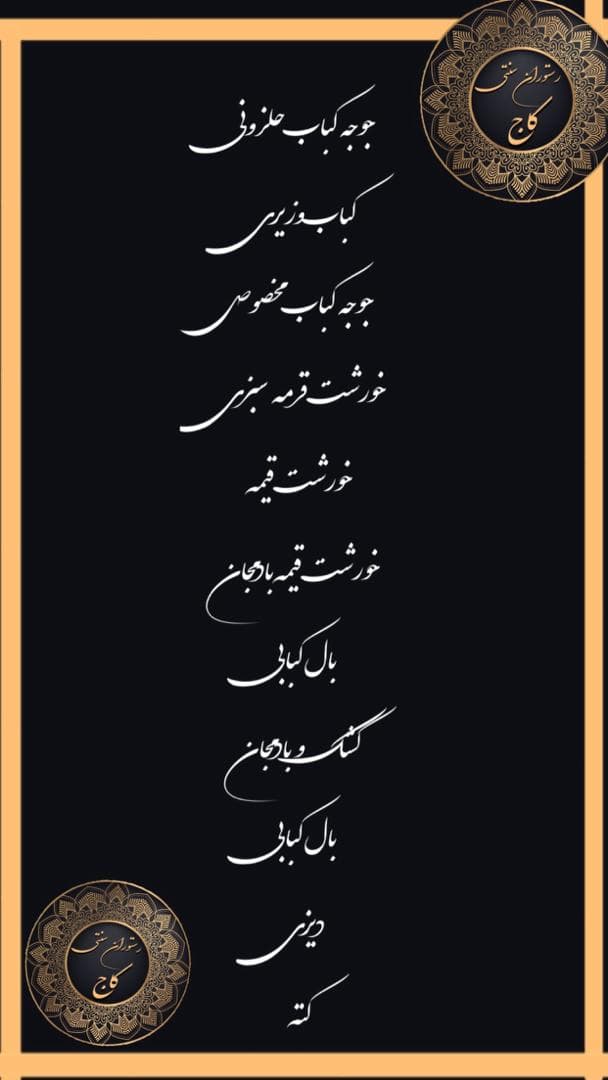 رستوران سنتی
کاج
جوجه کباب حلزونی
کباب وزیری
جوجه کباب مخصوص
خورشت قرمه سبزی
خورشت قیمه
خورشت قیمه بادمجان
بال کبابی
کشک و بادمجان
بال کبابی
دیزی
رستوران سنتی
کاج
کته